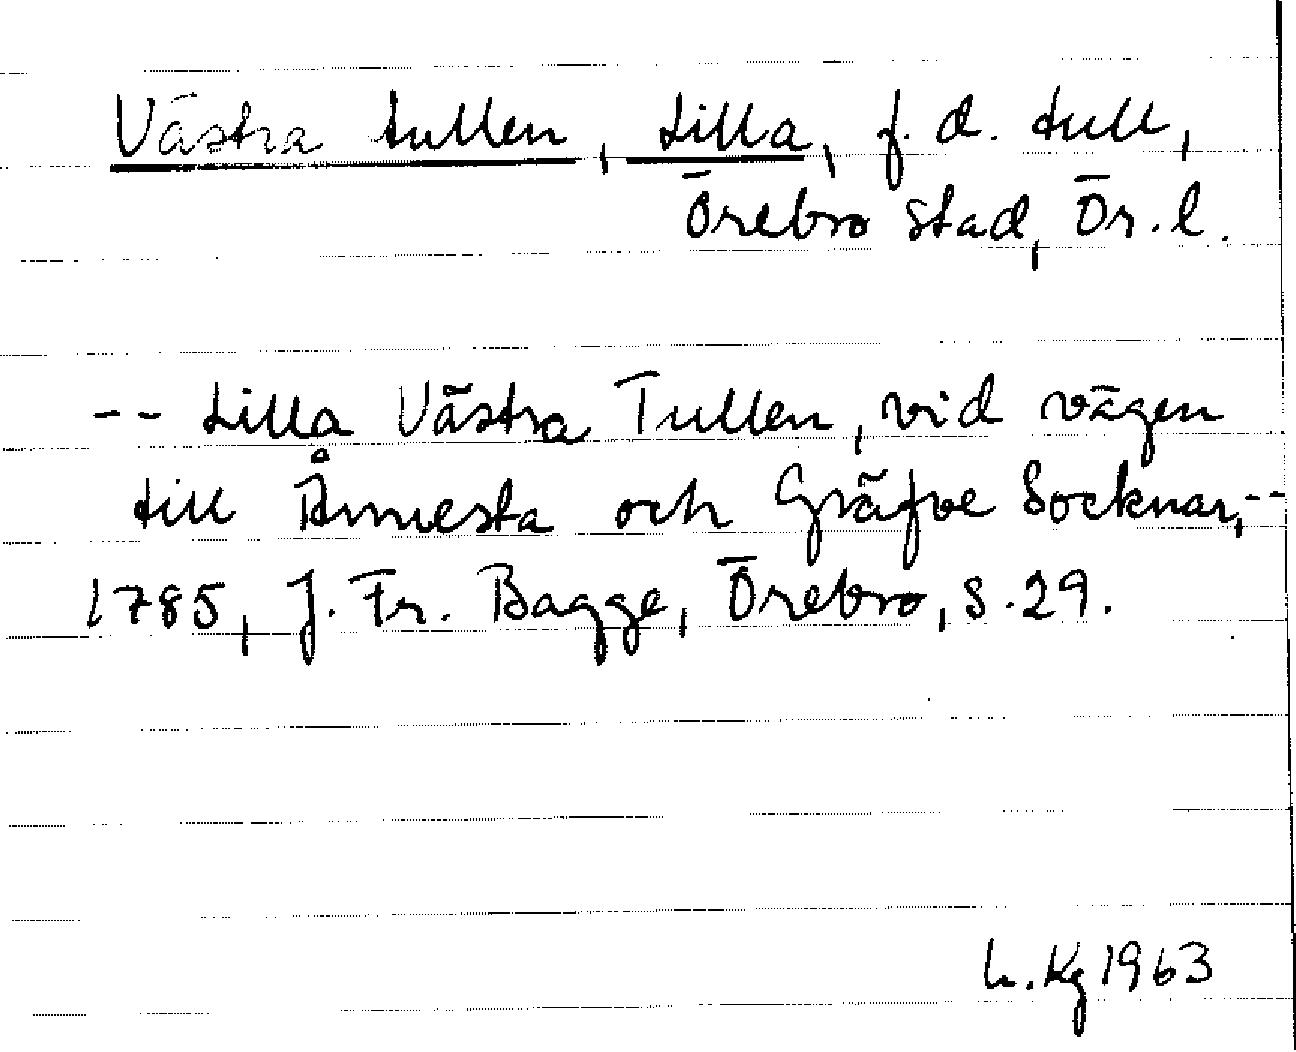 Västra tullen, Lilla, f.d. tull,
Örebro stad, Ör.l.
-- Lilla Västra Tullen, vid vägen
till Ånnesta och Gräfve Socknar, --
1785, J. Fr. Bagge, Örebro, s. 29.
L. Kg 1963